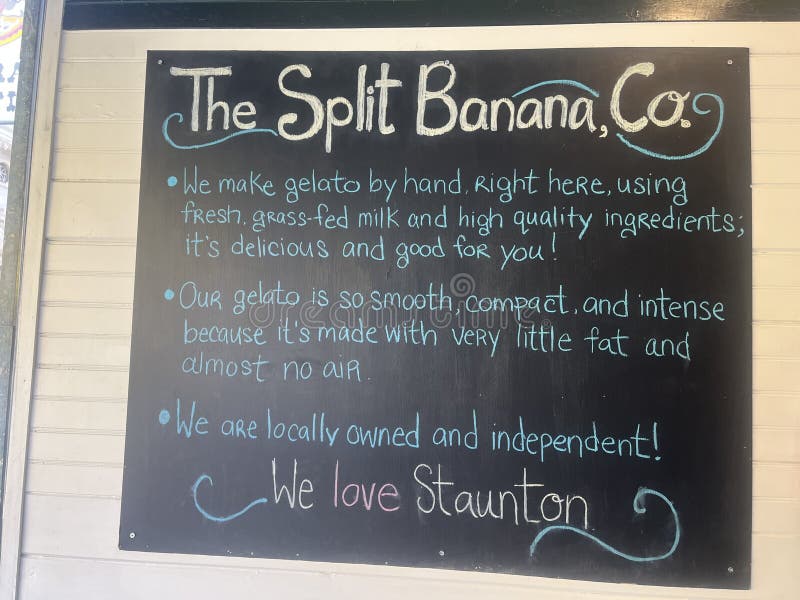 The Split Banana, Co.
• We make gelato by hand, right here, using
fresh, grass-fed milk and high quality ingredients;
it's delicious and good for you!
• Our gelato is so smooth, compact, and intense
because it's made with very little fat and
almost no air.
• We are locally owned and independent!
We love Staunton
dreamstime